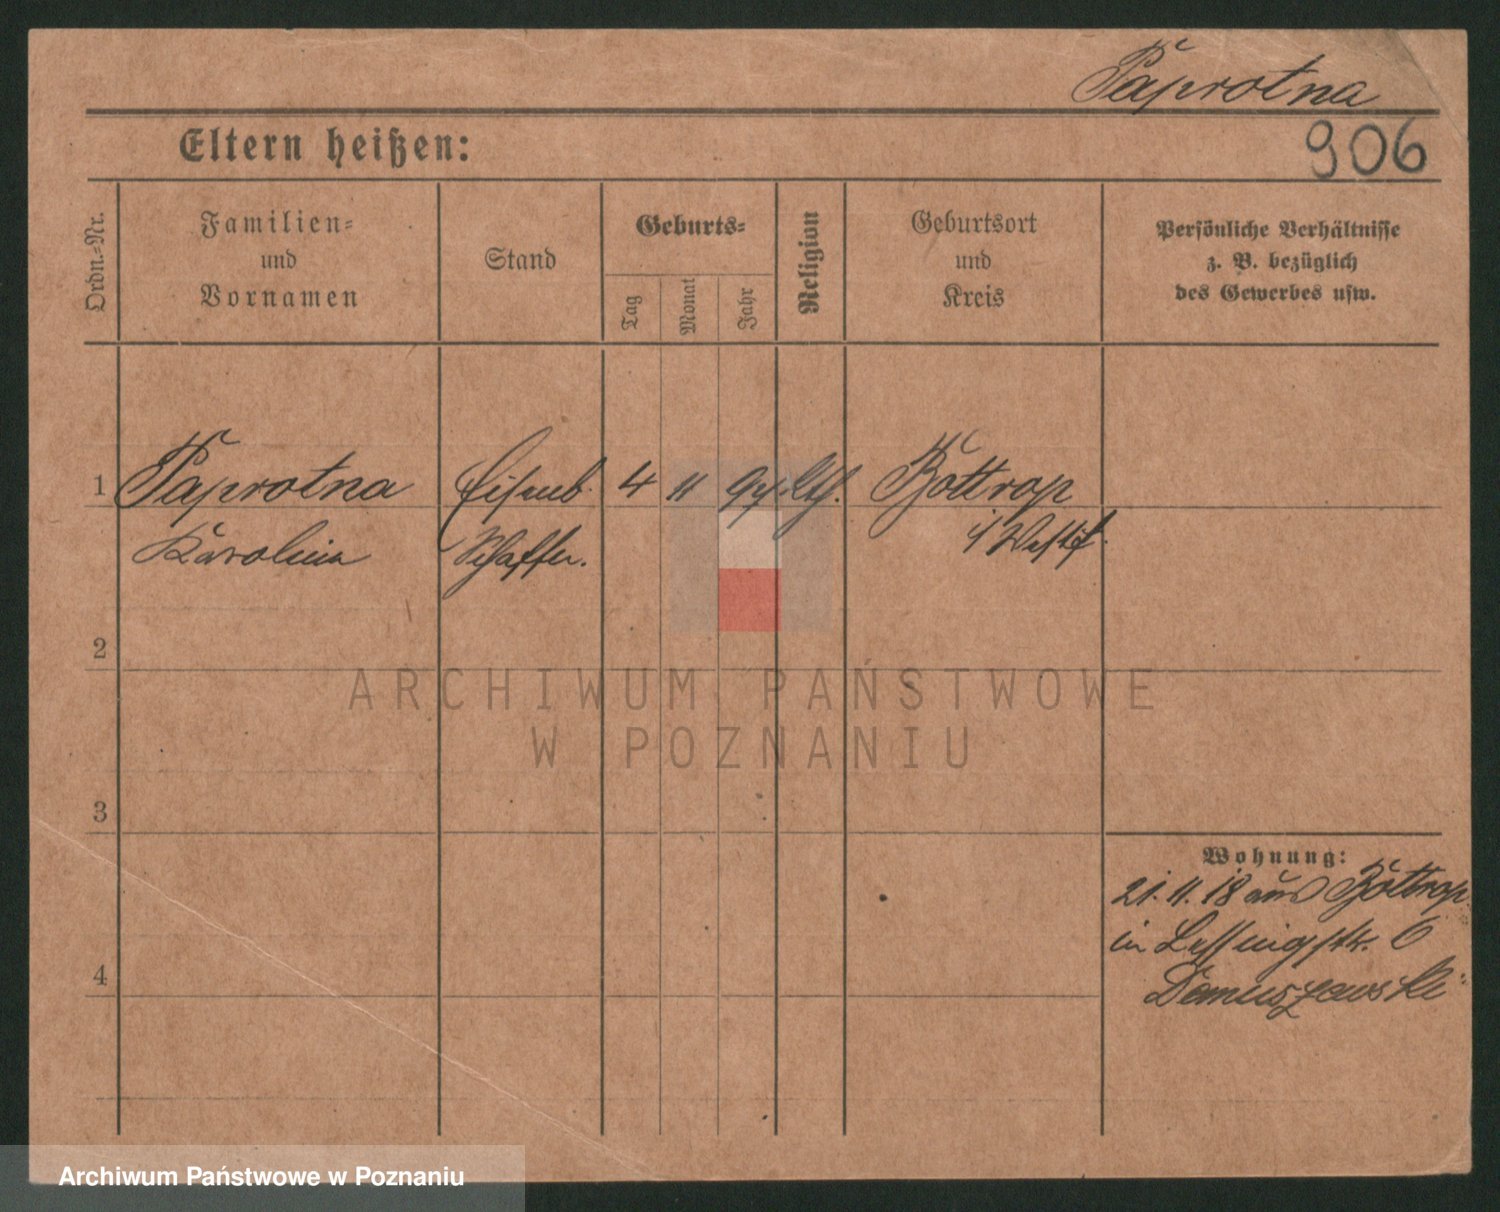 Paprotna
906
Eltern heißen:
Ordn.-Nr.
Familien-
und
Vornamen
Stand
Geburts-
Tag
Monat
Jahr
Religion
Geburtsort
und
Kreis
Persönliche Verhältnisse
z. B. bezüglich
des Gewerbes usw.
1 Paprotna Eisenb. 4 11 Bottrop
Karolina Schaffn. i/Westf.
2
ARCHIWUM PAŃSTWOWE
W POZNANIU
3
Wohnung:
21.11.18 aus Bottrop
in Lessingstr. 6
4
Archiwum Państwowe w Poznaniu